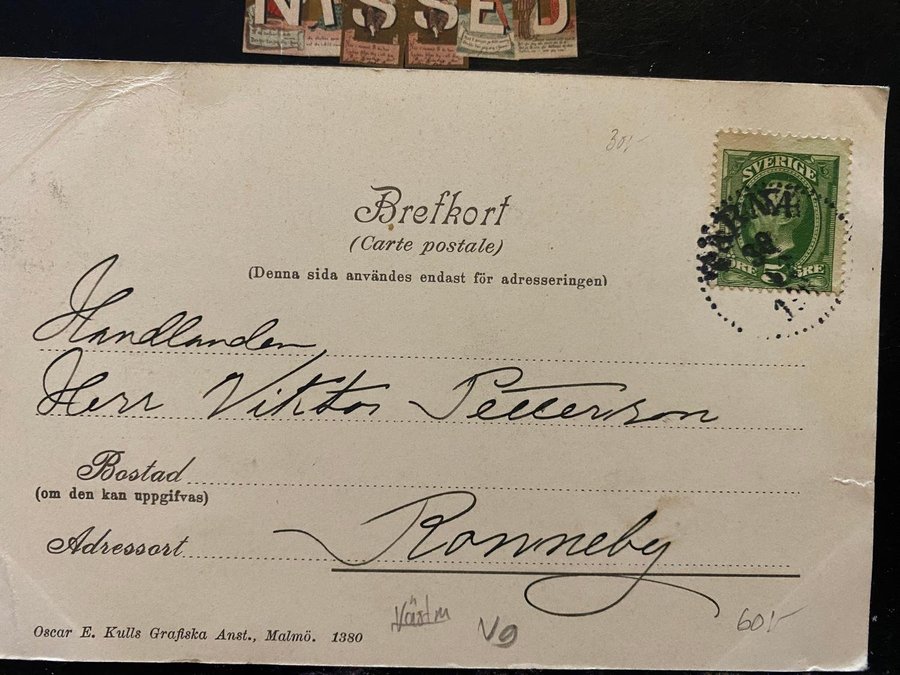 NISSED
30:-
SVERIGE
Brefkort
(Carte postale)
(Denna sida användes endast för adresseringen)
5 ÖRE
Handlanden
Herr Viktor Petterson
Bostad
(om den kan uppgifvas)
Adressort Ronneby
Västm
Vg
60:-
Oscar E. Kulls Grafiska Anst., Malmö. 1380